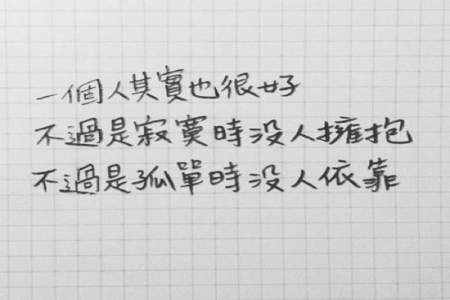 一個人其實也很好
不過是寂寞時沒人擁抱
不過是孤單時沒人依靠